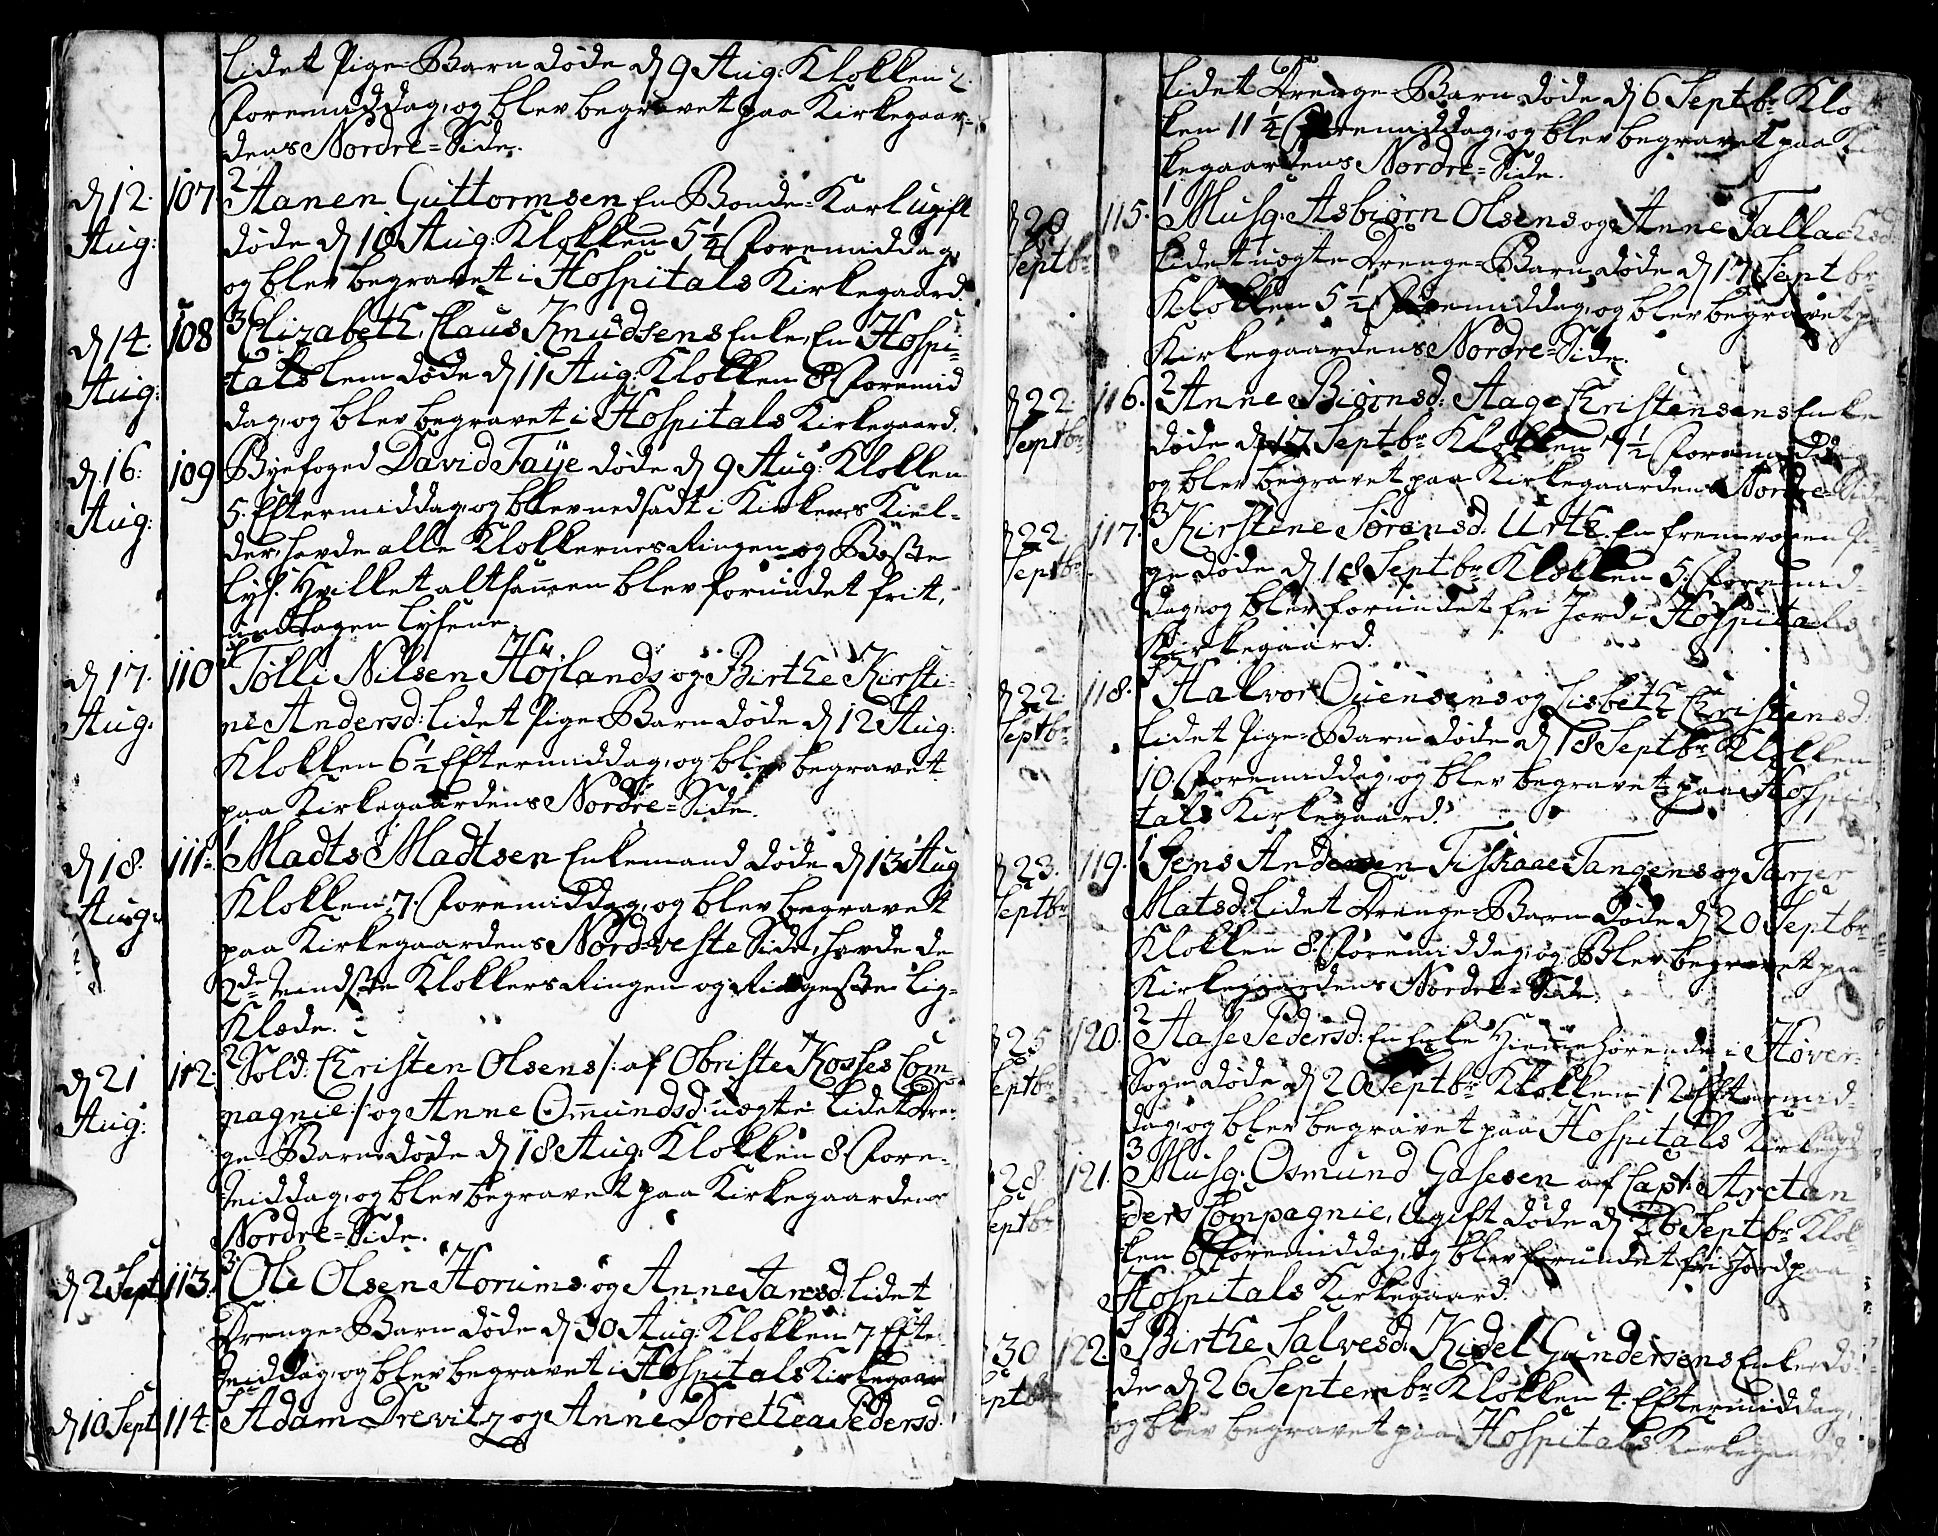 lidet Pige-Barn døde d 9 Aug: Klokken 2.
Foremiddag, og blev begravet paa Kirkegaar-
dens Nordre-Side.
d 12. Aug: 107. 2 Aanen Guttormsen En Bonde-Karl ugift
døde d 10 Aug: Klokken 5¼ Foremiddag,
og blev begravet i Hospitals Kirkegaard.
d 14. Aug: 108 3 Elizabeth, Claus Knudsens Enke, En Hospi-
tals lem døde d 11 Aug: Klokken 8 Foremid
dag, og blev begravet i Hospitals Kirkegaard.
d 16. Aug: 109 Byefoged David Faÿe døde d 9 Aug: Klokken
5. Eftermiddag, og blev nedsadt i Kirkens Kiel-
der, havde alle Klokkernes Ringen og Bæste
lys. Hvilket altsammen blev forundet frit,
undtagen lysene.
d 17. Aug: 110 Tolli Nilsen Høÿlands og Birthe Kirsti-
ne Andersd: lidet Pige-Barn døde d 12 Aug:
Klokken 6½ Eftermiddag, og blev begravet
paa Kirkegaardens Nordre-Side.
d 18. Aug: 111. 1 Madts Madtsen Enkemand døde d 13 Aug
Klokken 7. Foremiddag, og blev begravet
paa Kirkegaardens Nord-veste Side, havde de
2de mindste Klokkers Ringen og Ringeste Lig-
Klæde.
d 21 Aug: 112. 2 Sold: Christen Olsens /: af Obriste Kosses Com-
pagnie :/ og Anne Omundsd: uægte lidet Dren-
ge-Barn døde d 18 Aug: Klokken 8. Fore-
middag, og blev begravet paa Kirkegaardens
Nordre-Side.
d 2 Sept 113. 3 Ole Olsen Horums og Anne Jansd: lidet
Drenge-Barn døde d 30 Aug: Klokken 7 Efter
middag, og blev begravet i Hospitals Kirkegaard
d 10 Sept 114. Adam Drewitz og Anne Dorethea Pedersd:
lidet Drenge-Barn døde d 6 Septbr Klo
ken 11¼ Foremiddag, og blev begravet paa Kir
kegaardens Nordre-Side.
d 20 Septbr 115. 1 Musq: Asbiørn Olsens og Anne Tallacksd:
lidet uægte Drenge-Barn døde d 17 Septbr
Klokken 5½ Foremiddag, og blev begravet paa
Kirkegaardens Nordre-Side.
d 22 Septbr 116. 2 Anne Biørnsd: Aage Christensens Enke
døde d 17 Septbr Klokken 9½ Foremiddag
og blev begravet paa Kirkegaardens Nordre-Side
d 22 Septbr 117. 3 Kirstine Sørensd: Urth. En fremvoxen Pi-
ge døde d 18 Septbr Klokken 5. Foremid-
dag, og blev forundet fri Jord i Hospitals
Kirkegaard.
d 22. Septbr 118. Halvor Ouensens og Lisbeth Christensd:
lidet Pige-Barn døde d 18 Septbr Klokken
10. Foremiddag, og blev begravet paa Hospi
tals Kirkegaard.
d 23. Septbr 119. 1 Jens Andersen Tangens og Tarjer
Matsd: lidet Drenge-Barn døde d 20 Septbr
Klokken 8. Foremiddag, og Blev begravet paa
Kirkegaardens Nordre-Side.
d 25 Septbr 120. 2 Aase Pedersd: En Enke Hiemmehørende i Høver:
Sogn døde d 20 Septbr Klokken 12 Eftermid-
dag, og blev begravet paa Hospitals Kirkegaard
28 Septbr 121. 3 Musq: Osmund Gasesen af Capt: Arctan
ders Compagnie, Ugift døde d 26 Septbr Klok-
ken 6 Foremiddag, og blev forundet fri Jord paa
Hospitals Kirkegaard.
30 Septbr 122. Birthe Salvesd: Kidel Gundersens Enke dø-
de d 26 Septembr Klokken 4. Eftermiddag,
og blev begravet paa Hospitals Kirkegaard.